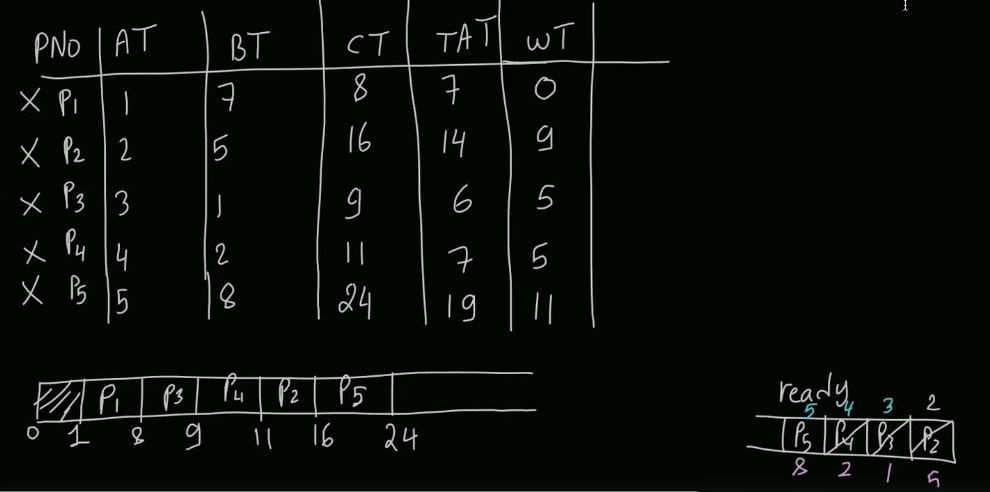 PNO AT BT CT TAT WT
X P1 1 7 8 7 0
X P2 2 5 16 14 9
X P3 3 1 9 6 5
X P4 4 2 11 7 5
X P5 5 8 24 19 11
P1 P3 P4 P2 P5
0 1 8 9 11 16 24
ready
5 4 3 2
P5 P4 P3 P2
8 2 1 5